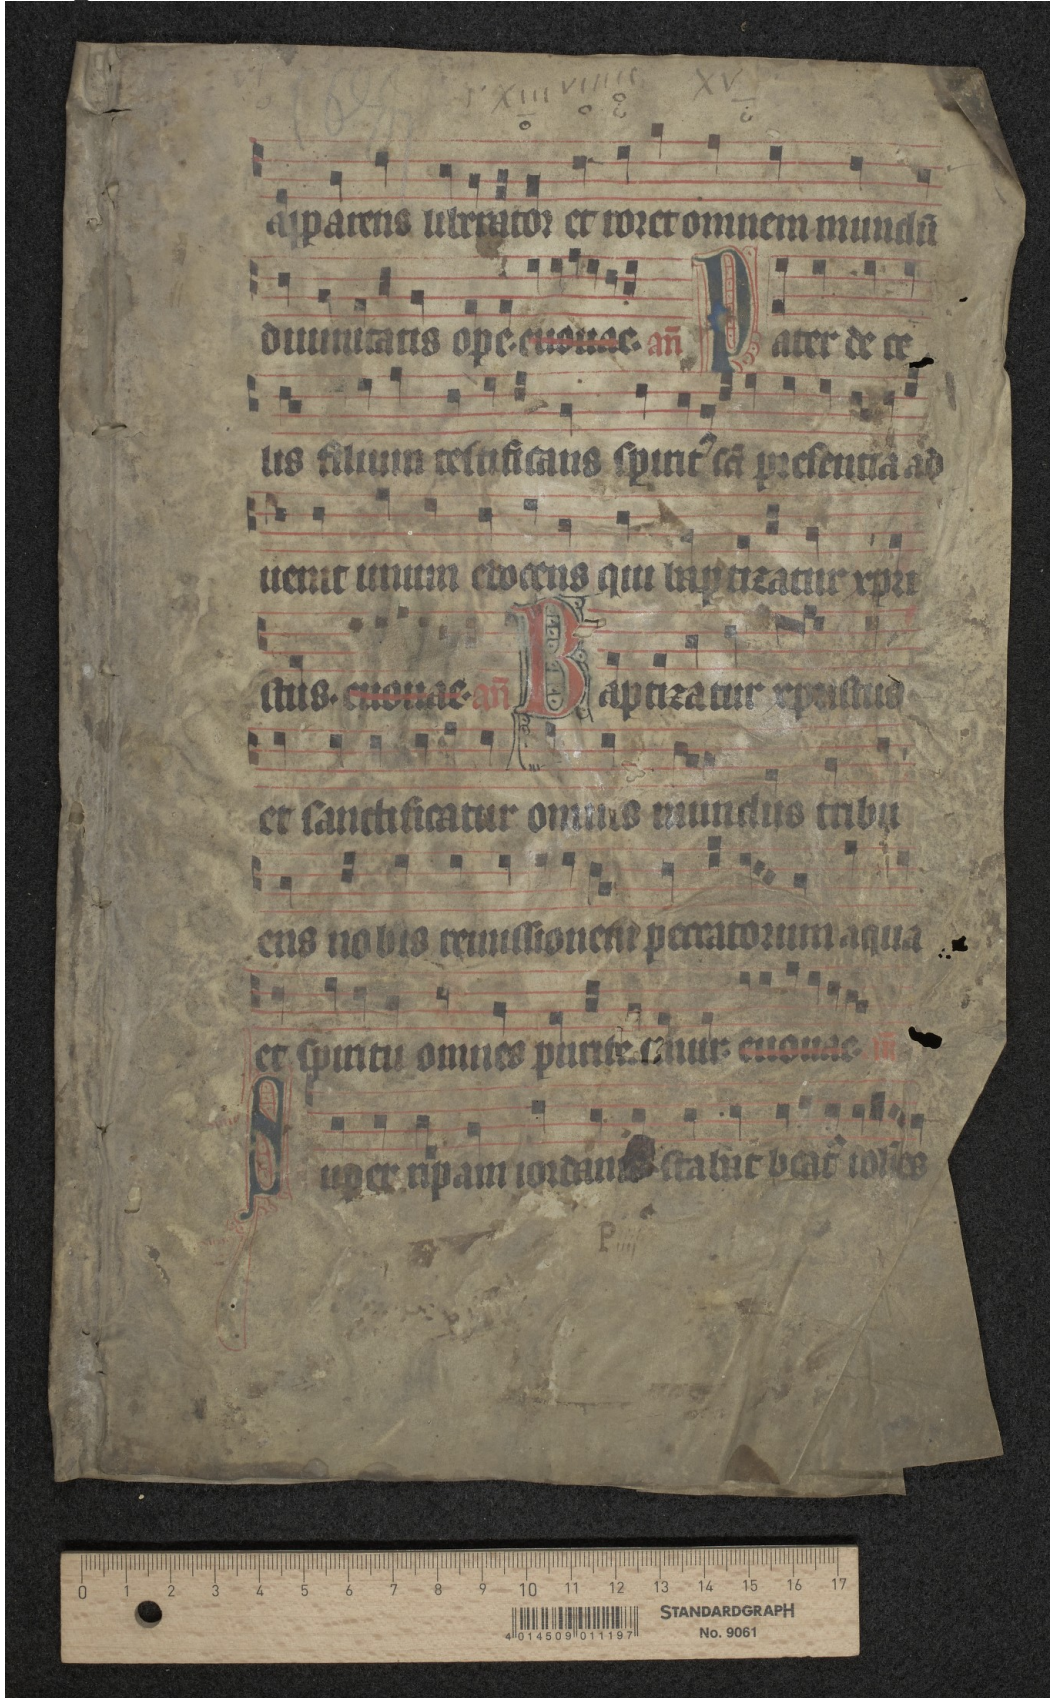 XIII VIIII XV
apparens liberator et roret omnem mundū
diuinitatis ope. euouae. an̄ Pater de ce
lis filium testificans spirit᾽ sc̄i presentia ad
uenit unum edocens qui baptizatur xpri
stus. euouae. an̄ Baptizatur xpristus
et sanctificatur omnis mundus tribu
ens nobis remissionem peccatorum aqua
et spiritu omnes euouae. in̄
Super ripam iordanis stabat beat᾽ ioh̄es
P iiii
0 1 2 3 4 5 6 7 8 9 10 11 12 13 14 15 16 17
STANDARDGRAPH
4 014509 011197
No. 9061